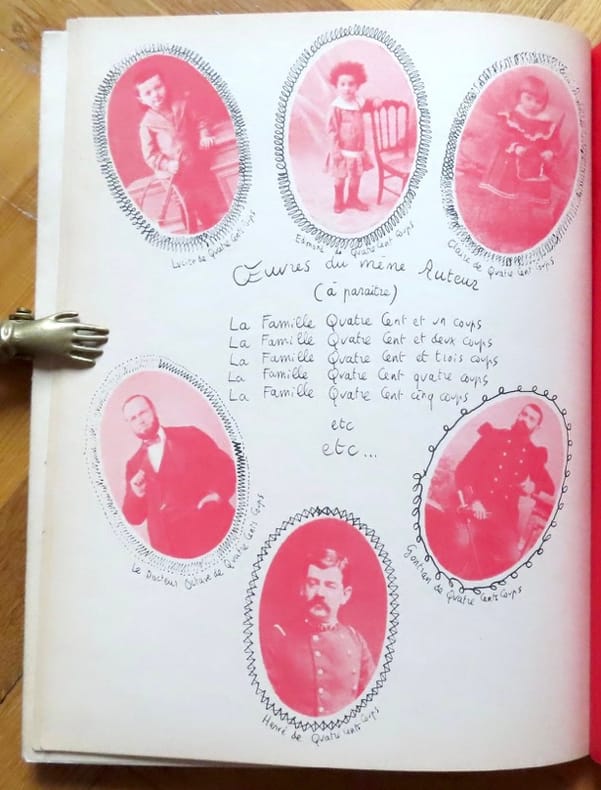 Lucien de Quatre Cent Coups
Edmond de Quatre Cent Coups
Claire de Quatre Cent Coups
Œuvres du même Auteur
(à paraître)
La Famille Quatre Cent et un coups
La Famille Quatre Cent et deux coups
La Famille Quatre Cent et trois coups
La Famille Quatre Cent quatre coups
La Famille Quatre Cent cinq coups
etc
etc...
Le Docteur Octave de Quatre Cents Coups
Gontran de Quatre Cents Coups
Hervé de Quatre Cents Coups